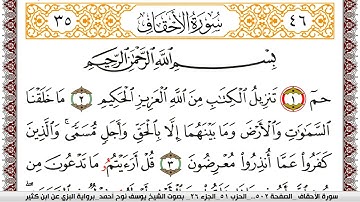 ٤٦ سُورَةُ الأَحْقَافِ ٣٥
بِسْمِ اللَّهِ الرَّحْمَٰنِ الرَّحِيمِ
حمٓ ١ تَنزِيلُ الْكِتَابِ مِنَ اللَّهِ الْعَزِيزِ الْحَكِيمِ ٢ مَا خَلَقْنَا
السَّمَٰوَٰتِ وَالْأَرْضَ وَمَا بَيْنَهُمَا إِلَّا بِالْحَقِّ وَأَجَلٍ مُّسَمًّى ۚ وَالَّذِينَ
كَفَرُوا عَمَّا أُنذِرُوا مُعْرِضُونَ ٣ قُلْ أَرَءَيْتُم مَّا تَدْعُونَ مِن
سورة الأحقاف _ الصفحة ٥٠٢ _ الحزب ٥١ _ الجزء ٢٦ _ بصوت الشيخ يوسف نوح أحمد _ برواية البزي عن ابن كثير